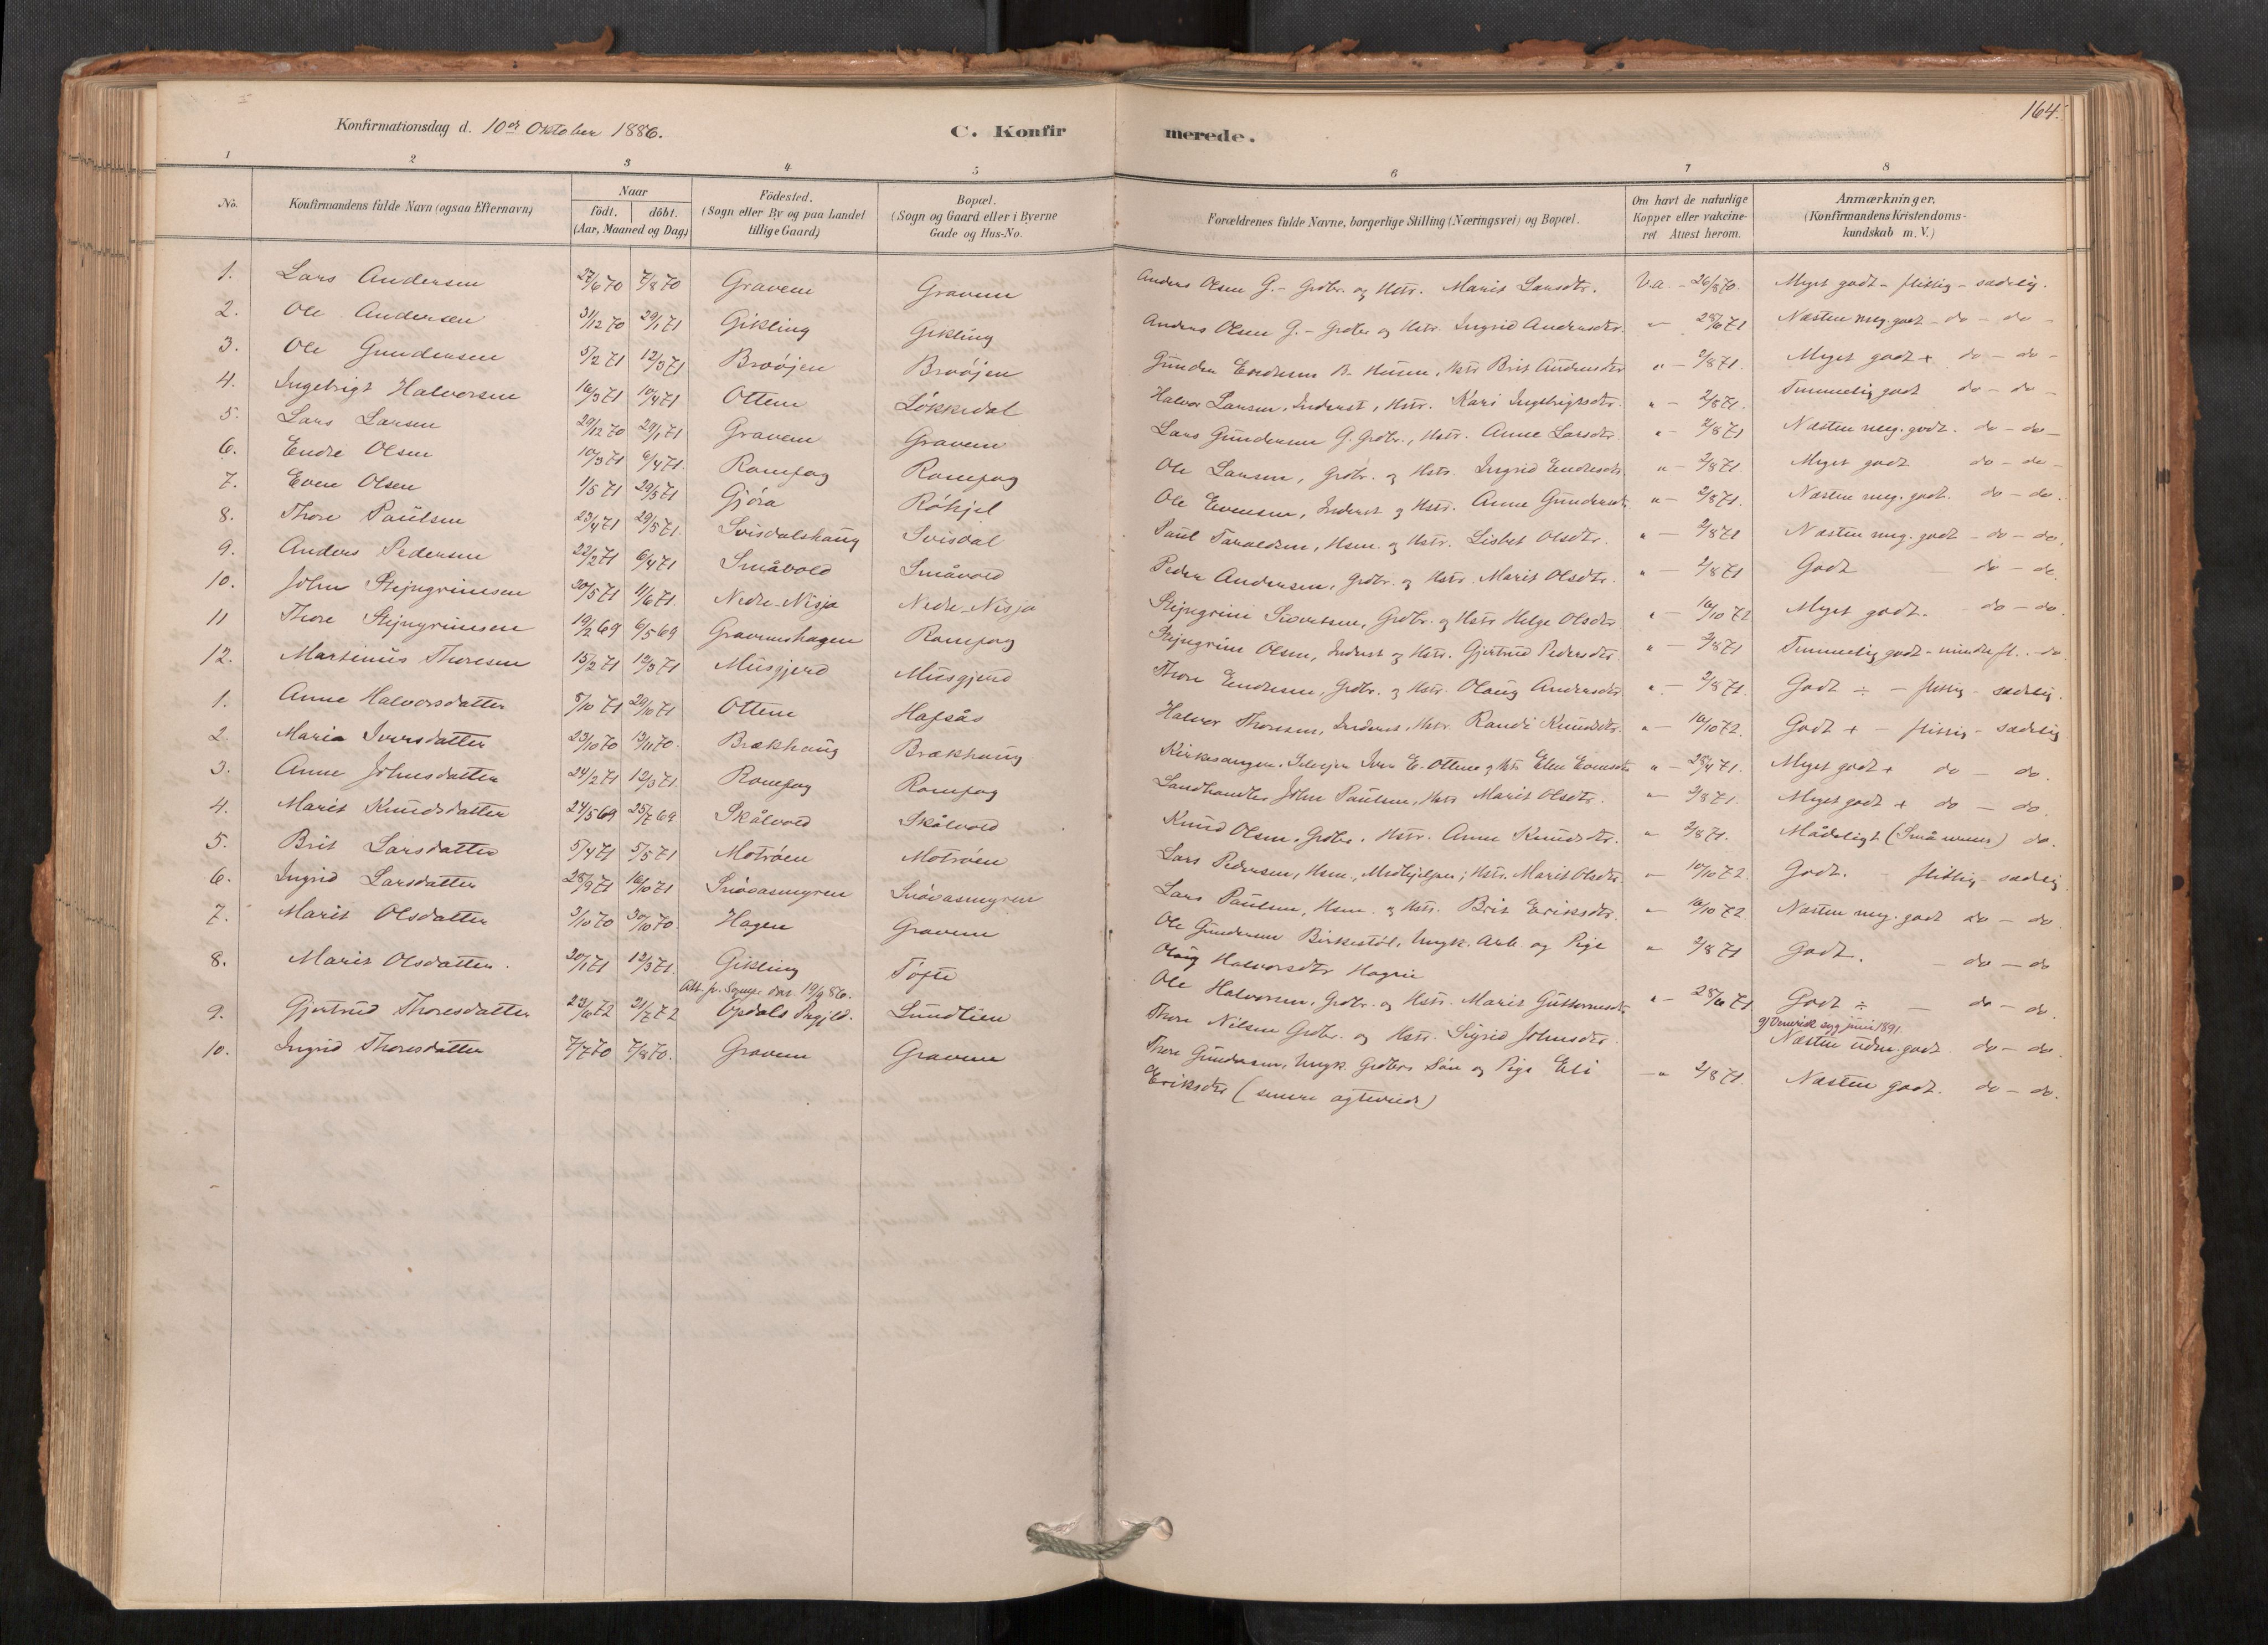 164.
Konfirmationsdag d. 10de Oktober 1886. C. Konfirmerede.
1 2 3 4 5 6 7 8
No. Konfirmandens fulde Navn (ogsaa Efternavn) Naar födt. döbt. (Aar, Maaned og Dag) Födested. (Sogn eller By og paa Landet tillige Gaard) Bopæl. (Sogn og Gaard eller i Byerne Gade og Hus-No. Forældrenes fulde Navne, borgerlige Stilling (Næringsvei) og Bopæl. Om havt de naturlige Kopper eller vakcineret. Attest herom. Anmærkninger. (Konfirmandens Kristendomskundskab m. V.)
1. Lars Andersen 27/6 70 7/8 70 Gravem Gravem Anders Olsen G. - Grdbr. og Hstr. Marit Larsdtr. V.a. - 26/8 70. Meget godt - flittig - sædelig.
2. Ole Andersen 31/12 70 29/1 71 Gikling Gikling Anders Olsen G. - Grdbr og Hstr. Ingrid Andersdtr. " - 28/6 71 Næsten meg. godt - do - do -
3. Ole Gundersen 5/2 71 12/3 71 Brøøjen Brøøjen Gunder Endresen B. Husm., Hstr Brit Andersdtr " - 2/8 71. Meget godt + do - do -
4. Ingebrigt Halvorsen 16/3 71 10/4 71 Ottem Løkkedal Halvor Larsen, Inderst, Hstr. Kari Ingebrigtsdtr. " - 2/8 71. Temmelig godt do - do -
5. Lars Larsen 29/12 70 29/1 71 Gravem Gravem Lars Gundersen G. Grdbr., Hstr. Anne Larsdtr. " - 2/8 71 Næsten meg. godt. do - do -
6. Endre Olsen 10/3 71 6/4 71. Romfog Romfog Ole Larsen, Grdbr. og Hstr. Ingrid Endresdtr. " - 2/8 71. Meget godt do - do -
7. Even Olsen 1/5 71 29/5 71 Gjøra Røhjel Ole Evensen, Inderst og Hstr. Anne Gundersdtr " - 2/8 71. Næsten meg. godt. do - do.
8. Thore Paulsen 23/4 71 29/5 71. Svisdalshaug Svisdal Paul Taraldsen, Hsm. og Hstr. Lisbet Olsdtr. " - 2/8 71 Næsten meg. godt - do - do.
9. Anders Pedersen 22/2 71 6/4 71 Småvold Småvold Peder Andersen, Grdbr. og Hstr. Marit Olsdtr. " - 2/8 71 Godt - do - do
10. John Stejngrimsen 20/5 71 11/6 71. Nedre-Nisja Nedre-Nisja Stejngrim Sivertsen, Grdbr. og Hstr Helge Olsdtr. " - 10/10 72 Meget godt. do - do.
11 Thore Stejngrimsen 19/2 69 6/5 69 Gravemshagen Romfog Stejngrim Olsen, Inderst og Hstr. Gjertrud Pedersdtr. " - 2/8 71 Temmelig godt - mindre fl. - do
12. Martinus Thoresen 15/2 71 12/3 71 Musgjerd Musgjerd Thore Endresen, Grdbr. og Hstr. Olaug Andersdtr " - 2/8 71. Godt ÷ - flittig - sædelig.
1. Anne Halvorsdatter 8/10 71 29/10 71 Ottem Hafsås Halvor Thoresen, Inderst, Hstr. Randi Knudsdtr. " - 10/10 72. Godt + - flittig - sædelig
2. Maria Iversdatter 23/10 70 13/11 70. Brækhaug Brækhaug Kirkesanger Iver E. Ottem og Hstr Elen Evensdtr " - 28/4 71. Meget godt + do - do.
3. Anne Johnsdatter 24/2 71 12/3 71. Romfog Romfog Landhandler John Paulsen, Hstr Marit Olsdtr. " - 2/8 71. Meget godt + do - do.
4. Marit Knudsdatter 24/5 69 25/7 69 Skålvold Skålvold Knud Olsen, Grdbr. Hstr. Anne Knudsdtr. " 2/8 71. Mådeligt do.
5. Brit Larsdatter 5/4 71 5/5 71 Motrøen Motrøen Lars Pedersen, Hsm., Hstr. Marit Olsdtr " 10/10 72. Godt. - flittig - sædelig
6. Ingrid Larsdatter 28/9 71 16/10 71 Snøvasmyren Snøvasmyren Lars Paulsen, Hsm. og Hstr. Brit Eriksdtr. " 10/10 72 Næsten meg. godt do - do.
7. Marit Olsdatter 3/10 70 30/10 70. Hagen Gravem Ole Gundersen Birkestøl, Ungk. Arb. og Pige Olaug Halvorsdtr Hagen " 2/8 71 Godt. - do - do
8. Marit Olsdatter. 20/1 71 12/3 71. Gikling Tøfte Ole Halvorsen, Grdbr. og Hstr. Marit Guttormsdtr " - 28/6 71 Godt ÷ - do - do.
Att. fr. Sognepr. dat. 19/9 86. g/ Veneriksk syg juni 1891.
9. Gjertrud Thoresdatter 23/6 72 21/7 72 Opdals Prgjld. Lundlien Thore Nilsen Grdbr. og Hstr. Sigrid Johnsdtr. Næsten udm. godt do - do.
10. Ingrid Thoresdatter 7/7 70 7/8 70. Gravem Gravem Thore Gundersen, Ungk. Grdbrs Søn og Pige Eli Eriksdtr (senere ægteviede) - " 2/8 71. Næsten godt. do - do.